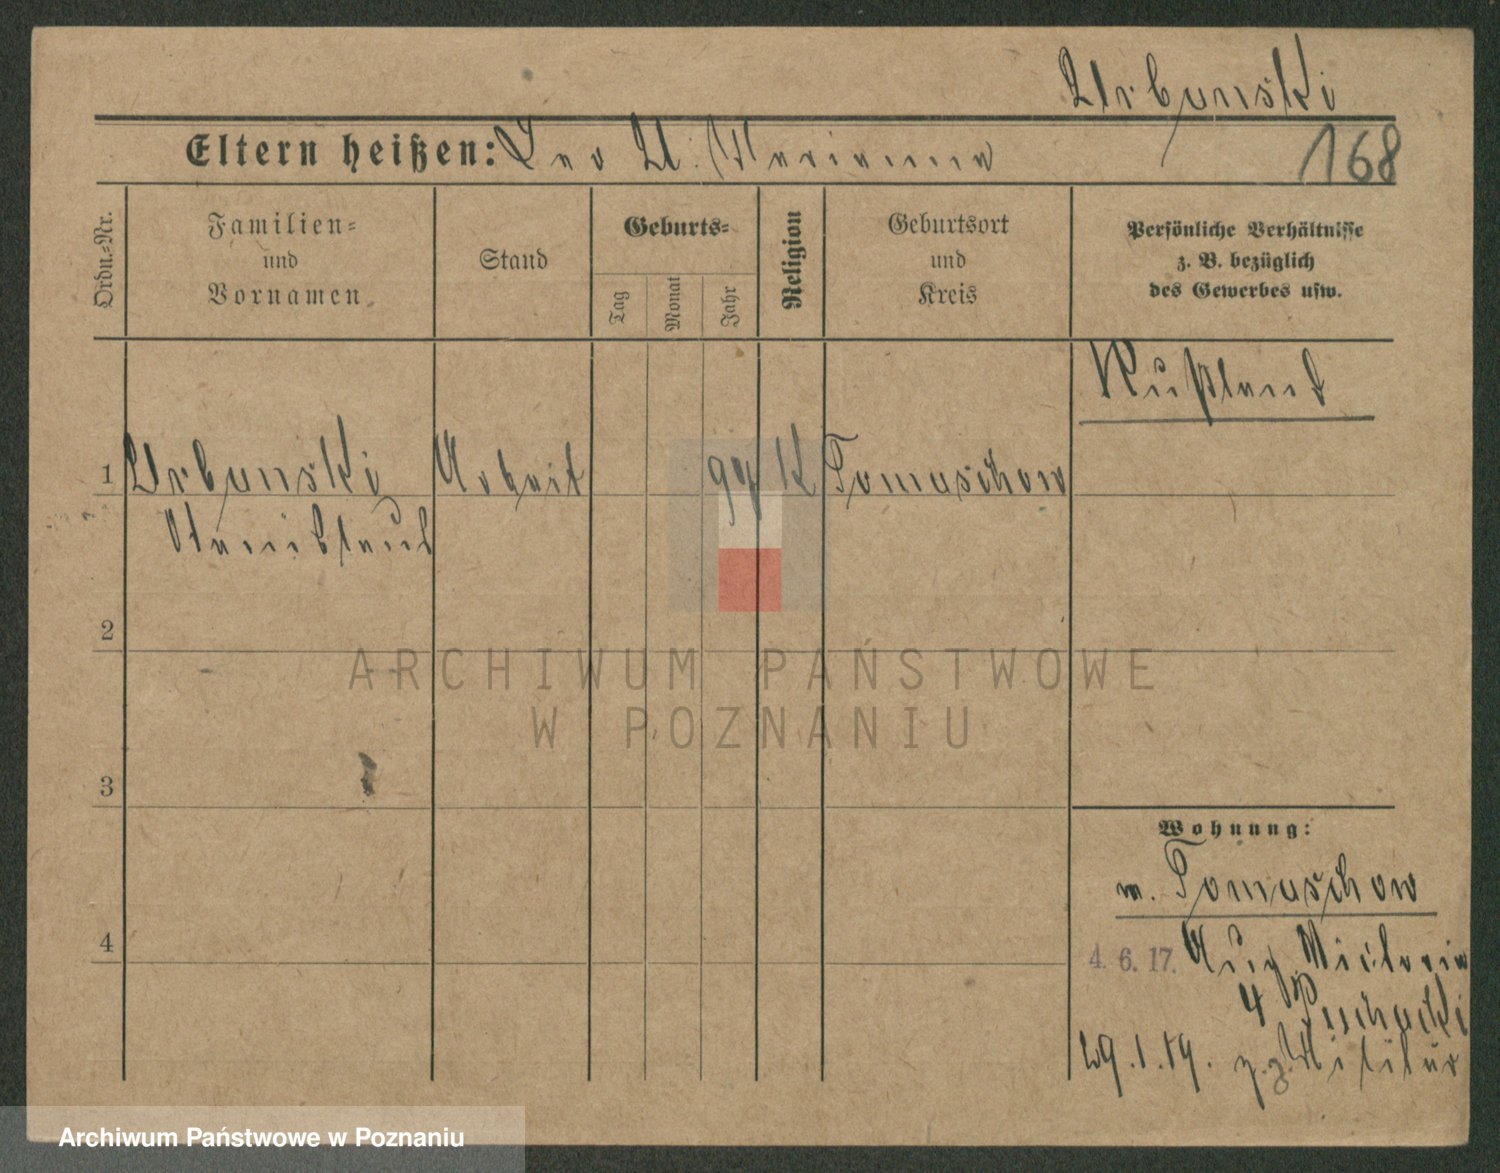 Urbanski
Eltern heißen: Leo U. Marianna
168
Ordn.-Nr.
Familien-
und
Vornamen
Stand
Geburts-
Tag
Monat
Jahr
Religion
Geburtsort
und
Kreis
Persönliche Verhältnisse
z. B. bezüglich
des Gewerbes usw.
Rußland
1 Urbanski Arbeit K Tomaschow
Stanislaus
2
3
4
Wohnung:
w. Tomaschow
4. 6. 17. Aug. Victoria
4
29.1.19. z. Militär
ARCHIWUM PAŃSTWOWE
W POZNANIU
Archiwum Państwowe w Poznaniu